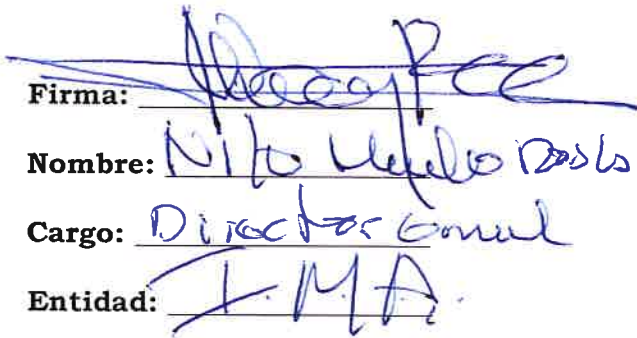 Firma:
Nombre: Nito
Cargo: Director General
Entidad: I.M.A.